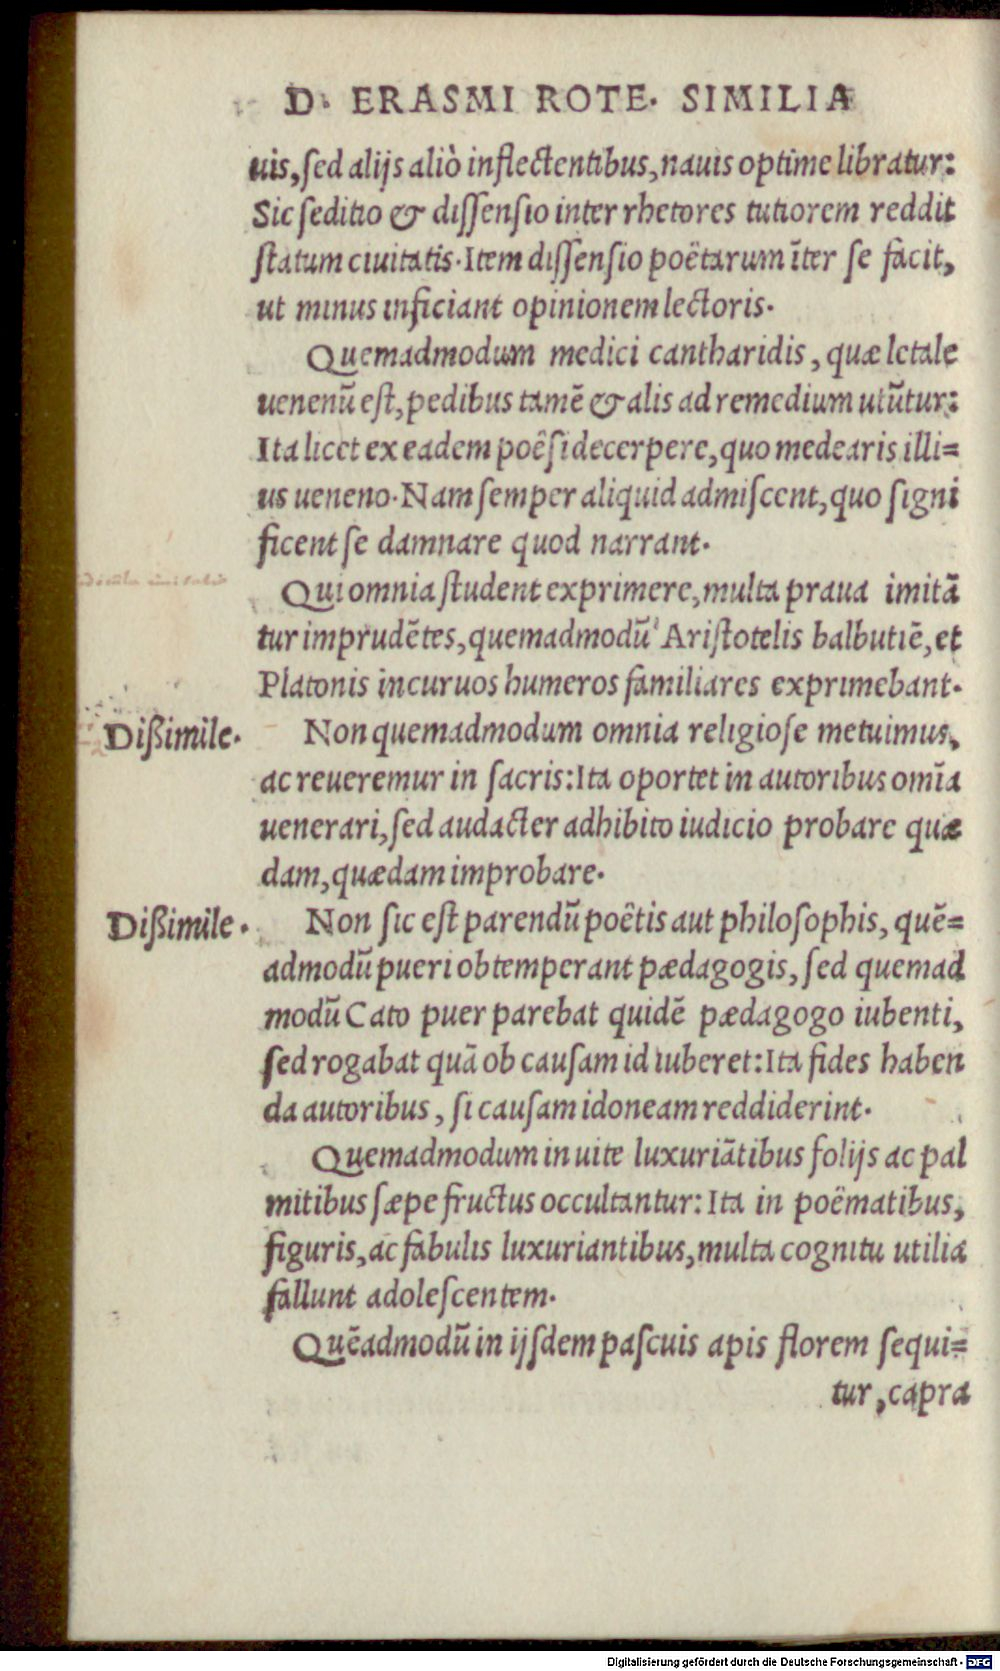 D. ERASMI ROTE. SIMILIA
uis, sed alijs aliò inflectentibus, nauis optime libratur:
Sic seditio & dissensio inter rhetores tutiorem reddit
statum ciuitatis. Item dissensio poëtarum īter se facit,
ut minus inficiant opinionem lectoris.
Quemadmodum medici cantharidis, quæ letale
uenenū est, pedibus tamē & alis ad remedium utūtur:
Ita licet ex eadem poësi decerpere, quo medearis illi=
us ueneno. Nam semper aliquid admiscent, quo signi
ficent se damnare quod narrant.
Qui omnia student exprimere, multa praua imitā
tur imprudētes, quemadmodū Aristotelis balbutiē, et
Platonis incuruos humeros familiares exprimebant.
Dißimile.
Non quemadmodum omnia religiose metuimus,
ac reueremur in sacris: Ita oportet in autoribus omīa
uenerari, sed audacter adhibito iudicio probare quæ
dam, quædam improbare.
Dißimile.
Non sic est parendū poëtis aut philosophis, quē=
admodū pueri obtemperant pædagogis, sed quemad
modū Cato puer parebat quidē pædagogo iubenti,
sed rogabat quā ob causam id iuberet: Ita fides haben
da autoribus, si causam idoneam reddiderint.
Quemadmodum in uite luxuriātibus folijs ac pal
mitibus sæpe fructus occultantur: Ita in poëmatibus,
figuris, ac fabulis luxuriantibus, multa cognitu utilia
fallunt adolescentem.
Quēadmodū in ijsdem pascuis apis florem sequi=
tur, capra
Digitalisierung gefördert durch die Deutsche Forschungsgemeinschaft - DFG